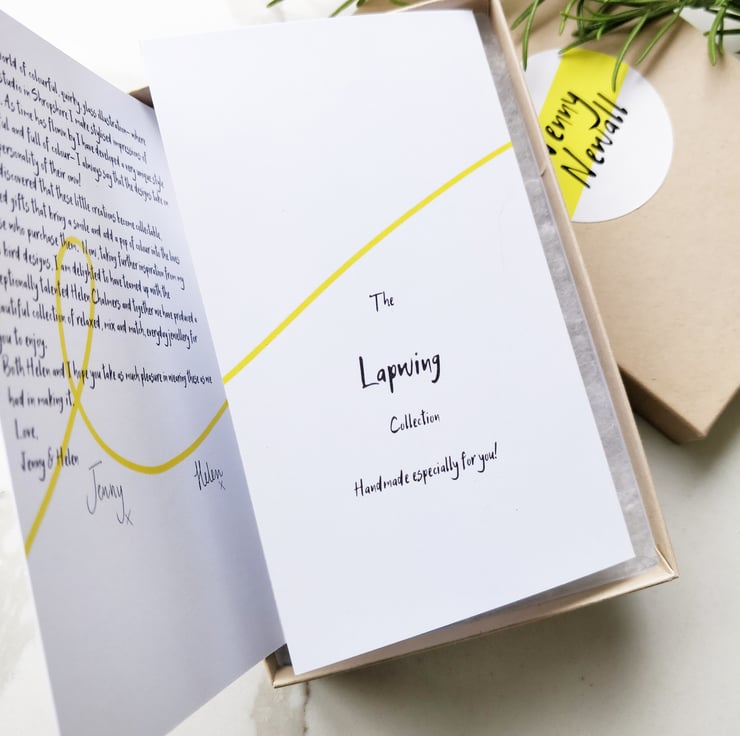 world of colourful, quirky glass illustration – where
studio in Shropshire I make stylised impressions of
. As time has flown by I have developed a very unique style
ful and full of colour – I always say that the designs take on
personality of their own!
discovered that these little creations become collectable
ed gifts that bring a smile and add a pop of colour into the lives
se who purchase them. Now, taking further inspiration from my
bird designs, I am delighted to have teamed up with the
eptionally talented Helen Chalmers and together we have produced a
autiful collection of relaxed, mix and match, everyday jewellery for
you to enjoy.
Both Helen and I hope you take as much pleasure in wearing these as we
had in making it.
Love,
Jenny & Helen
Jenny x
Helen x
The
Lapwing
Collection
Handmade especially for you!
Jenny
Newall